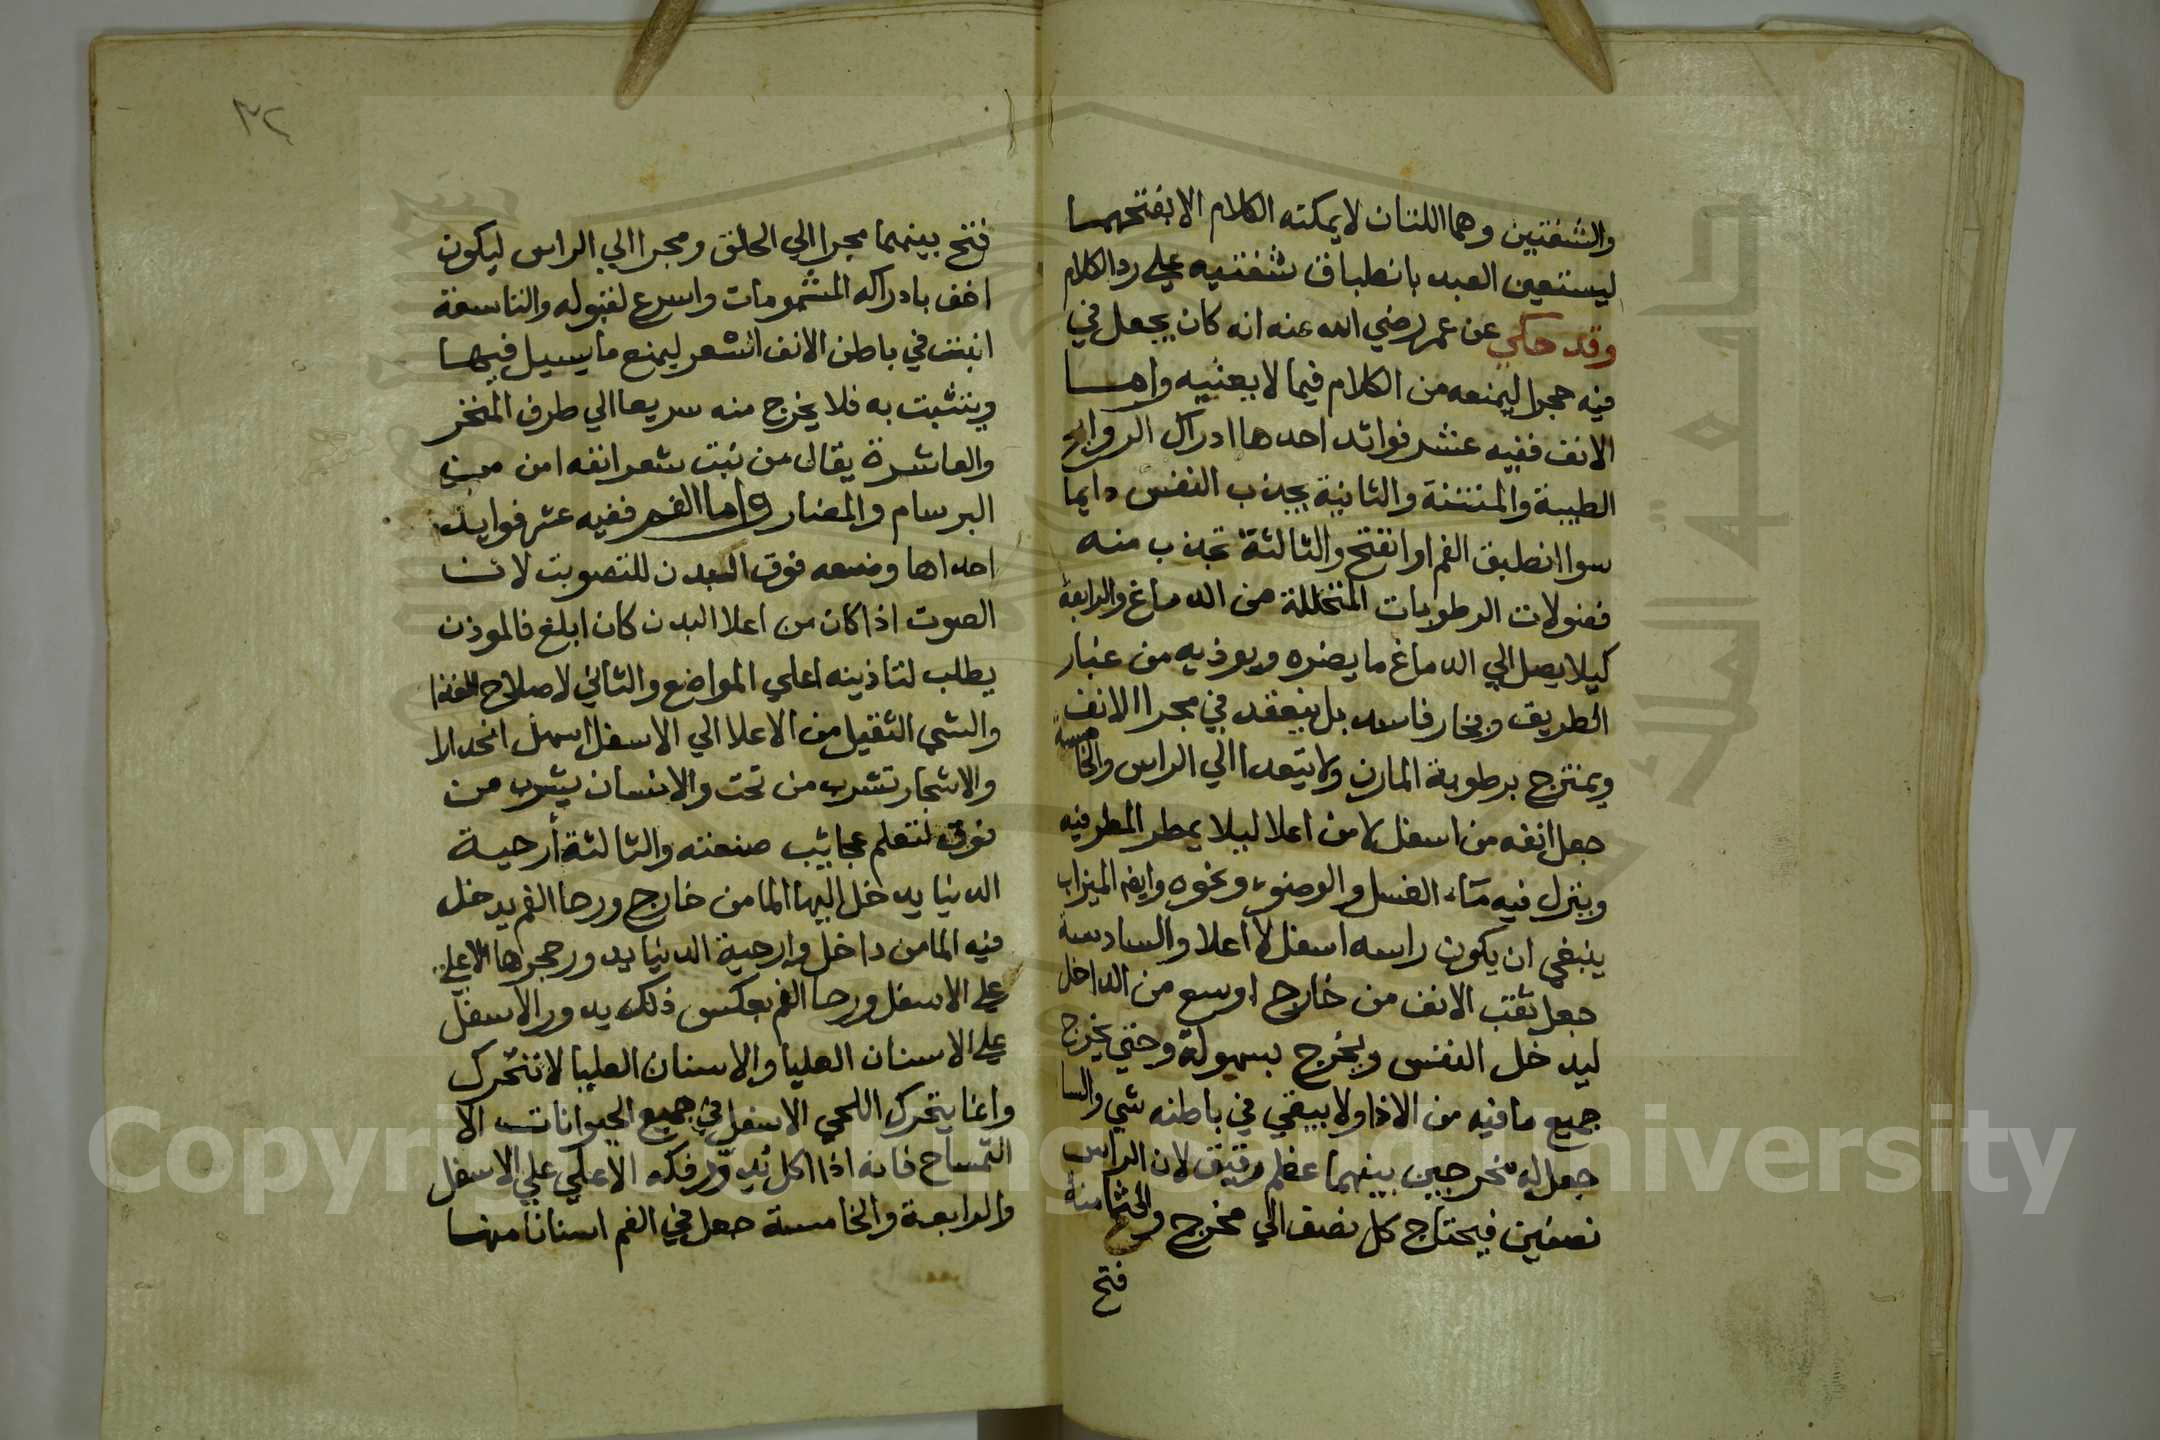 والشفتين وهما اللتان لا يمكنه الكلام الا بفتحهما
ليستعين العبد بانطباق شفتيه علي رد الكلام
وقد حكي عن عمر رضي الله عنه انه كان يجعل في
فيه حجرا ليمنعه من الكلام فيما لا يعنيه واما
الانف ففيه عشر فوائد احدها ادراك الروايح
الطيبة والمنتنة والثانية يجذب النفس دايما
سوا انطبق الفم او انفتح والثالثة تجذب منه
فضولات الرطوبات المتخللة من الدماغ والرابعة
كيلا يصل الي الدماغ ما يضره ويوذيه من غبار
الطريق وبخار فاسد بل ينعقد في مجرا الانف
ويمتزج برطوبة المارن ولا يتعدا الي الراس والخامسة
جعل انفه من اسفل لا من اعلا ليلا يمطر المطر فيه
وينزل فيه ماء الغسل والوضوء ونحوه وايضا الميزاب
ينبغي ان يكون راسه اسفل لا اعلا والسادسة
جعل ثقب الانف من خارج اوسع من الداخل
ليدخل النفس ويخرج بسهولة وحتي يخرج
جميع ما فيه من الاذا ولا يبقي في باطنه شي والسا
جعل له مخرجين بينهما عظم رقيق لان الراس
نصفين فيحتاج كل نصف الي مخرج والثامنة
فتح
٣٢
فتح بينهما مجرا الي الحلق ومجرا الي الراس ليكون
اخف بادراكه المشمومات واسرع لقبوله والتاسعة
انبت في باطن الانف الشعر ليمنع ما يسيل فيها
ويتثبت به فلا يخرج منه سريعا الي طرف المنخر
والعاشرة يقال من نبت شعر انفه امن من
البرسام والمضار واما الفم ففيه عشر فوايد
احداها وضعه فوق البدن للتصويت لان
الصوت اذا كان من اعلا البدن كان ابلغ فالموذن
يطلب لتاذينه اعلي المواضع والثاني لاصلاح الغذا
والشي الثقيل من الاعلا الي الاسفل اسهل انحدارا
والاشجار تشرب من تحت والانسان يشرب من
فوق لتعلم عجائب صنعته والثالثة أرحية
الدنيا يدخل اليها الما من خارج ورحا الفم يدخل
فيه الما من داخل وارحية الدنيا يدور حجرها الاعلي
علي الاسفل ورحا الفم بعكس ذلك يدور الاسفل
علي الاسنان العليا والاسنان العليا لا تتحرك
وانما يتحرك اللحي الاسفل في جميع الحيوانات الا
التمساح فانه اذا اكل يدور فكه الاعلي علي الاسفل
والرابعة والخامسة جعل في الفم اسنانا منها
Copyright © King Saud University
جامعة الملك سعود